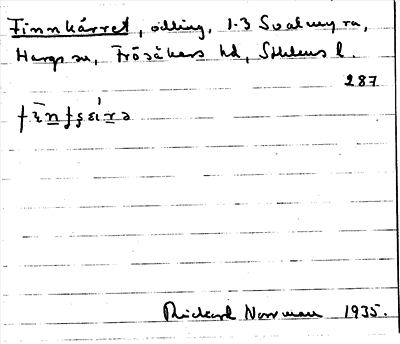 Finnkärret, odling, 1-3 Svalmyra,
Hargs sn, Frösåkers hd, Sthlms l.
287
Rickard Norrman 1935.